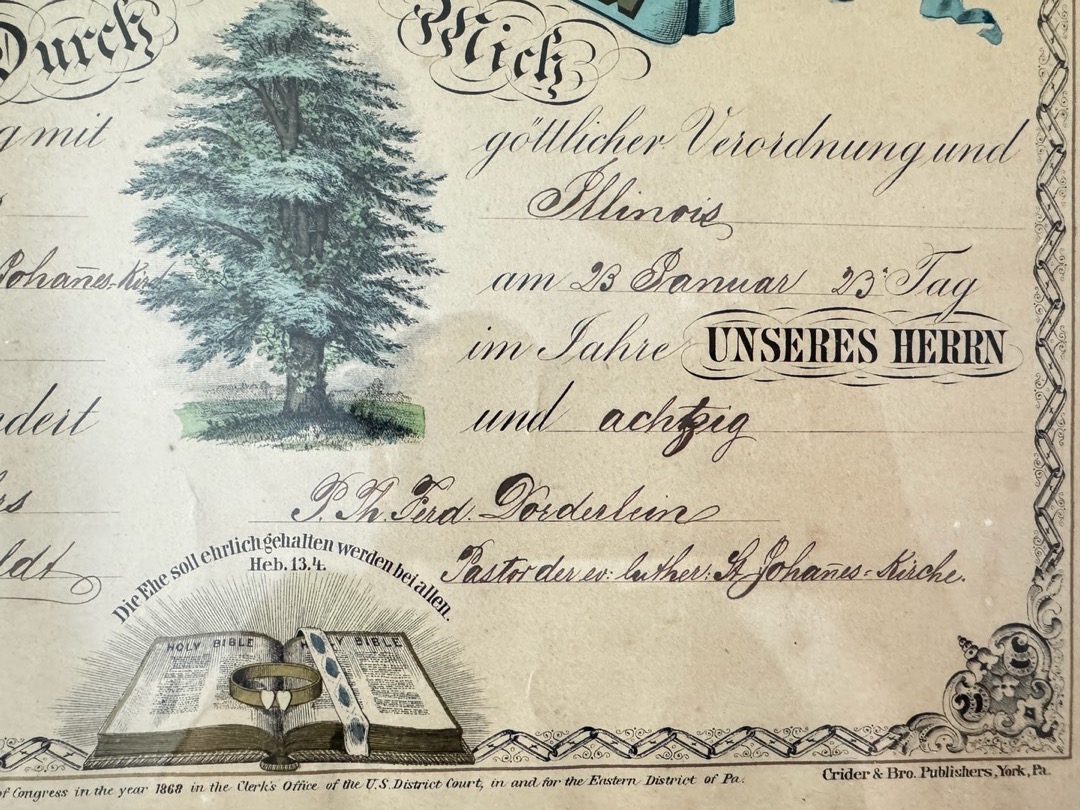 Durch Mich
g mit göttlicher Verordnung und
Illinois
Johañes-Kirch
am 23 Januar 23. Tag
im Jahre UNSERES HERRN
ndert und achtzig
rs
P. Th. Ferd. Dörderlein
ldt
Pastor der ev: luther: St. Johañes-Kirche.
Die Ehe soll ehrlich gehalten werden bei allen.
Heb. 13.4.
HOLY BIBLE
HOLY BIBLE
of Congress in the year 1868 in the Clerk's Office of the U.S. District Court, in and for the Eastern District of Pa.
Crider & Bro. Publishers, York, Pa.